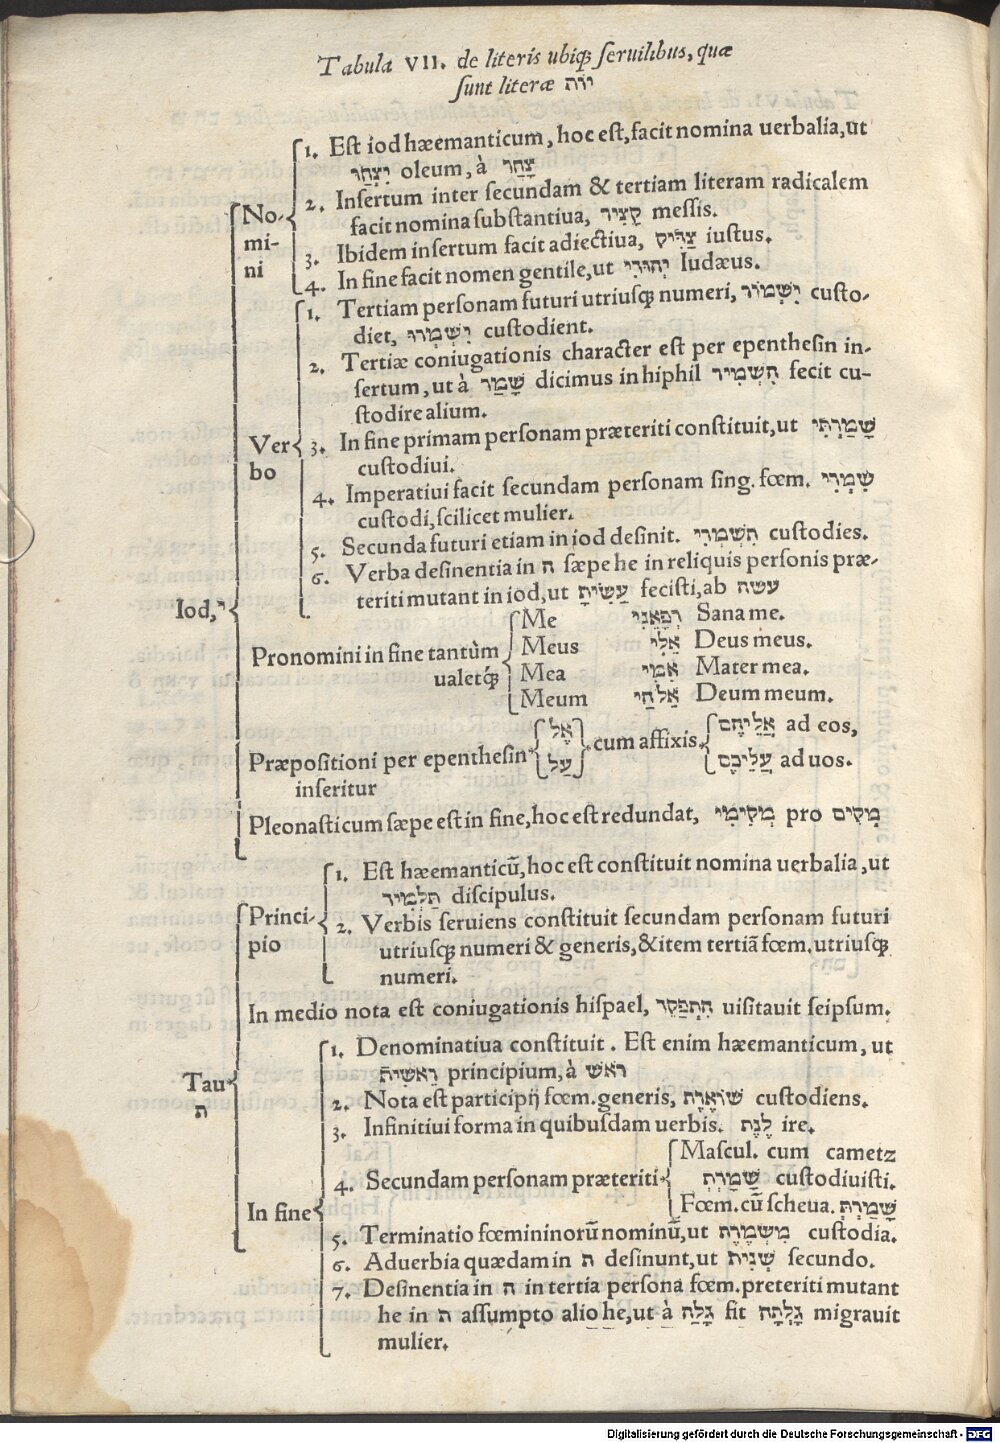 Tabula VII. de literis ubiq; seruilibus, quæ
sunt literæ יוה
Iod, י
No-
mi-
ni
1. Est iod hæemanticum, hoc est, facit nomina uerbalia, ut
יִצְהָר oleum, à צָהַר
2. Insertum inter secundam & tertiam literam radicalem
facit nomina substantiua, קָצִיר messis.
3. Ibidem insertum facit adiectiua, צַדִּיק iustus.
4. In fine facit nomen gentile, ut יְהוּדִי Iudæus.
Ver
bo
1. Tertiam personam futuri utriusq; numeri, יִשְׁמוֹר custo-
diet, יִשְׁמְרוּ custodient.
2. Tertiæ coniugationis character est per epenthesin in-
sertum, ut à שָׁמַר dicimus in hiphil הִשְׁמִיר fecit cu-
stodire alium.
3. In fine primam personam præteriti constituit, ut שָׁמַרְתִּי
custodiui.
4. Imperatiui facit secundam personam sing. fœm. שִׁמְרִי
custodi, scilicet mulier.
5. Secunda futuri etiam in iod desinit. תִּשְׁמְרִי custodies.
6. Verba desinentia in ה sæpe he in reliquis personis præ-
teriti mutant in iod, ut עָשִׂיתָ fecisti, ab עשה
Pronomini in fine tantùm
ualetq́;
Me רְפָאֵנִי Sana me.
Meus אֵלִי Deus meus.
Mea אִמִּי Mater mea.
Meum Deum meum.
Præpositioni per epenthesin
inseritur
אֶל
עַל
cum affixis,
אֲלֵיהֶם ad eos,
עֲלֵיכֶם ad uos.
Pleonasticum sæpe est in fine, hoc est redundat, מְקִימִי pro מֵקִים
Tau
ת
Princi-
pio
1. Est hæemanticũ, hoc est constituit nomina uerbalia, ut
תַּלְמִיד discipulus.
2. Verbis seruiens constituit secundam personam futuri
utriusq; numeri & generis, & item tertiã fœm. utriusq;
numeri.
In medio nota est coniugationis hispael, הִתְפַּקֵּד uisitauit seipsum.
In fine
1. Denominatiua constituit. Est enim hæemanticum, ut
רֵאשִׁית principium, à ראֹשׁ
2. Nota est participij fœm. generis, custodiens.
3. Infinitiui forma in quibusdam uerbis. לֶכֶת ire.
4. Secundam personam præteriti
Mascul. cum cametz
שָׁמַרְתָּ custodiuisti.
Fœm. cũ scheua. שָׁמַרְתְּ
5. Terminatio fœmininorũ nominũ, ut מִשְׁמֶרֶת custodia.
6. Aduerbia quædam in ת desinunt, ut שֵׁנִית secundo.
7. Desinentia in ה in tertia persona fœm. preteriti mutant
he in ת assumpto alio he, ut à גָּלָה fit גָּלְתָה migrauit
mulier.
Digitalisierung gefördert durch die Deutsche Forschungsgemeinschaft - DFG